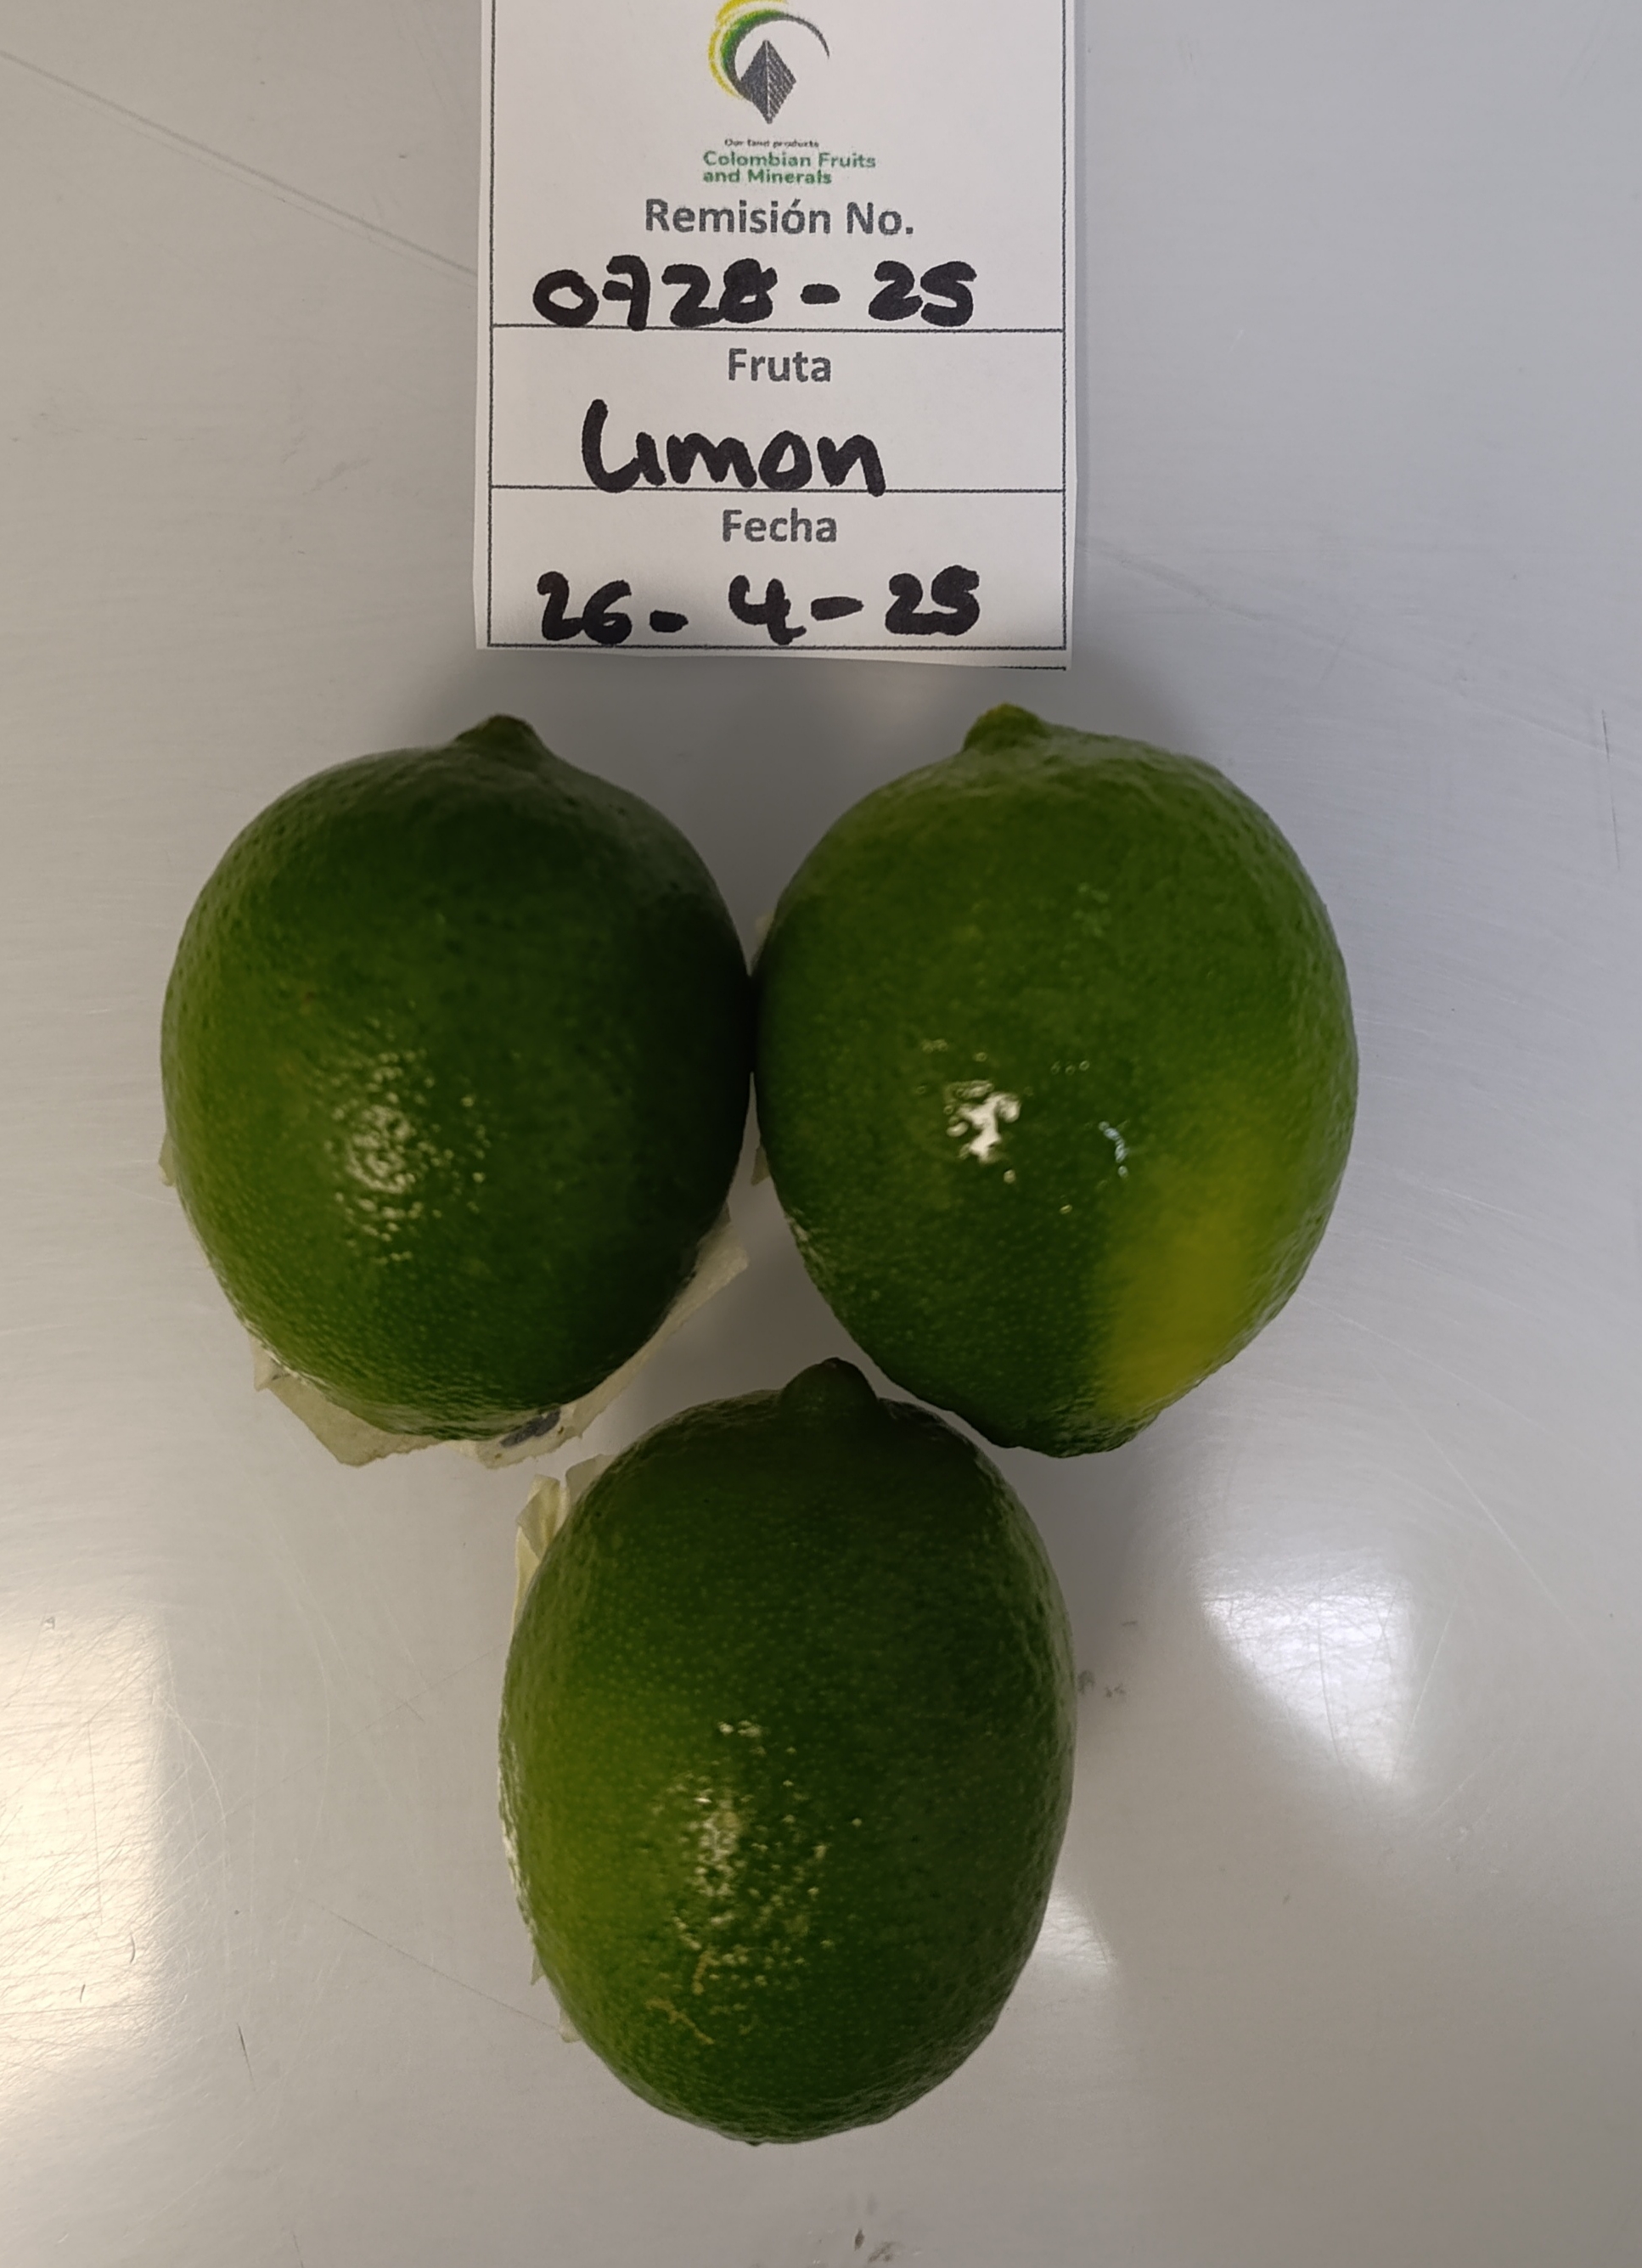 Our land products
Colombian Fruits
and Minerals
Remisión No.
0728-25
Fruta
Limon
Fecha
26-4-25